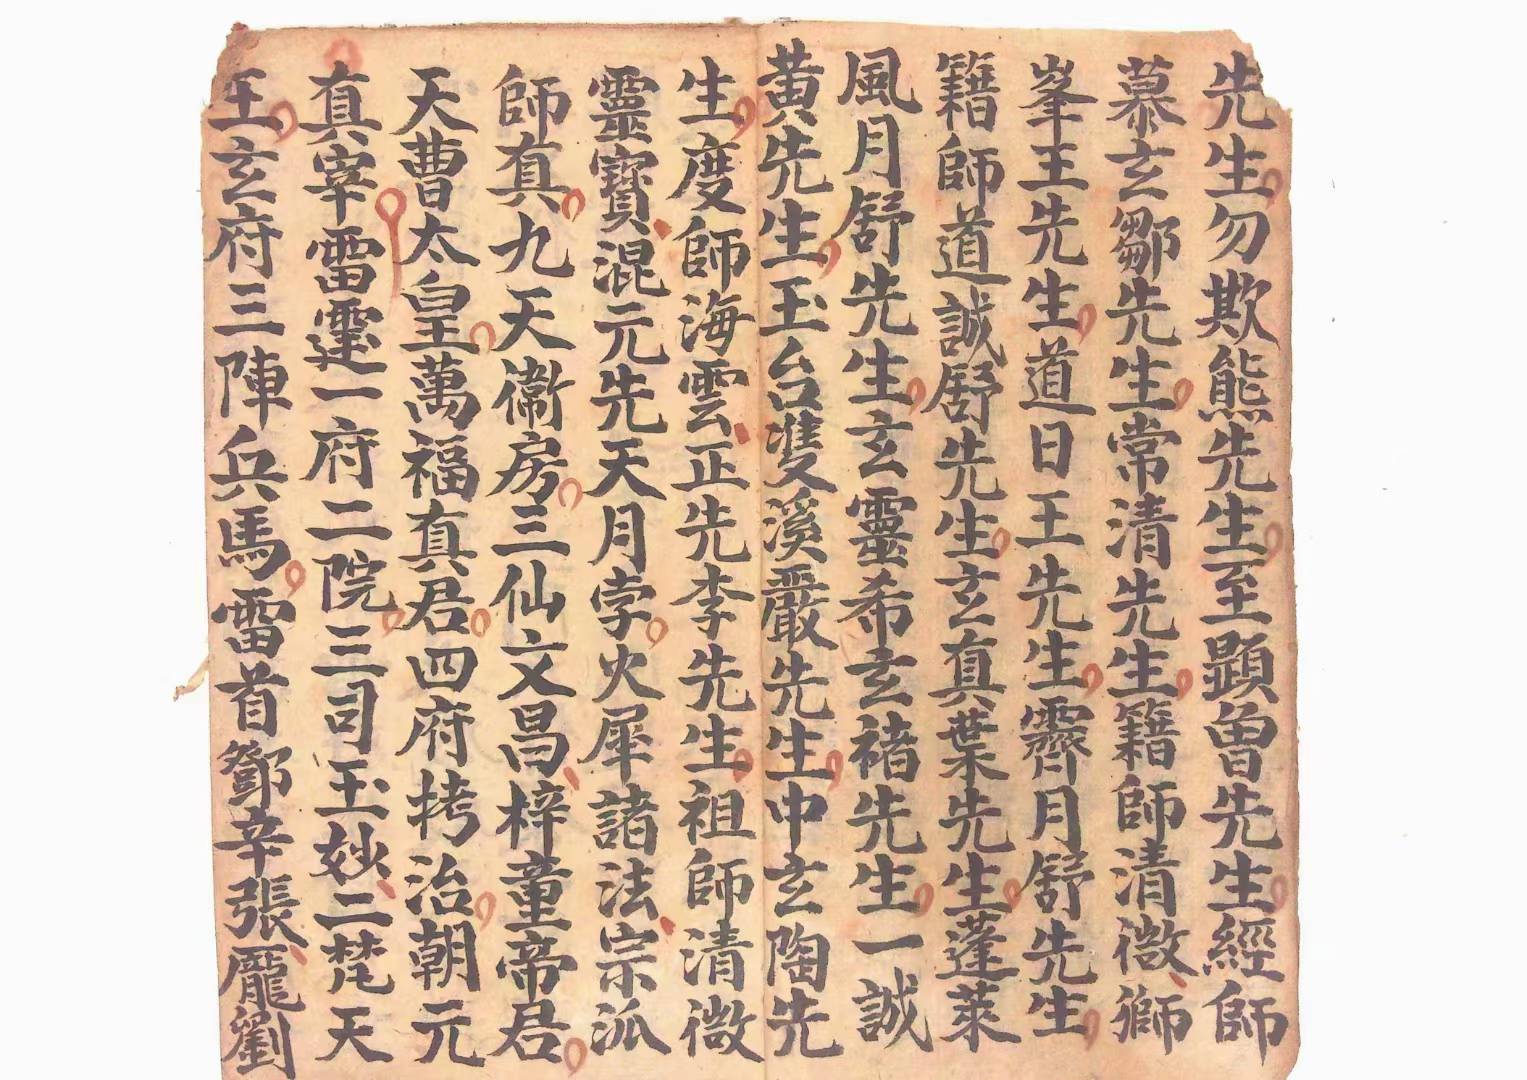 先生勿欺熊先生至顕曾先生經師
慕玄鄒先生常清先生籍師清微
峯王先生道日王先生霽月舒先生
籍師道誠舒先生玄真葉先生蓬萊
風月舒先生玄靈希玄褚先生一誠
黄先生玉台雙溪嚴先生中玄陶先
生度師海雲正先李先生祖師清微
靈寳混元先天月孛火犀諸法宗派
師真九天衛房三仙文昌梓童帝君
天曹太皇萬福真君四府拷治朝元
真宰雷霆一府二院三司玉妙二梵天
王玄府三陣兵馬雷首鄧辛張龎劉